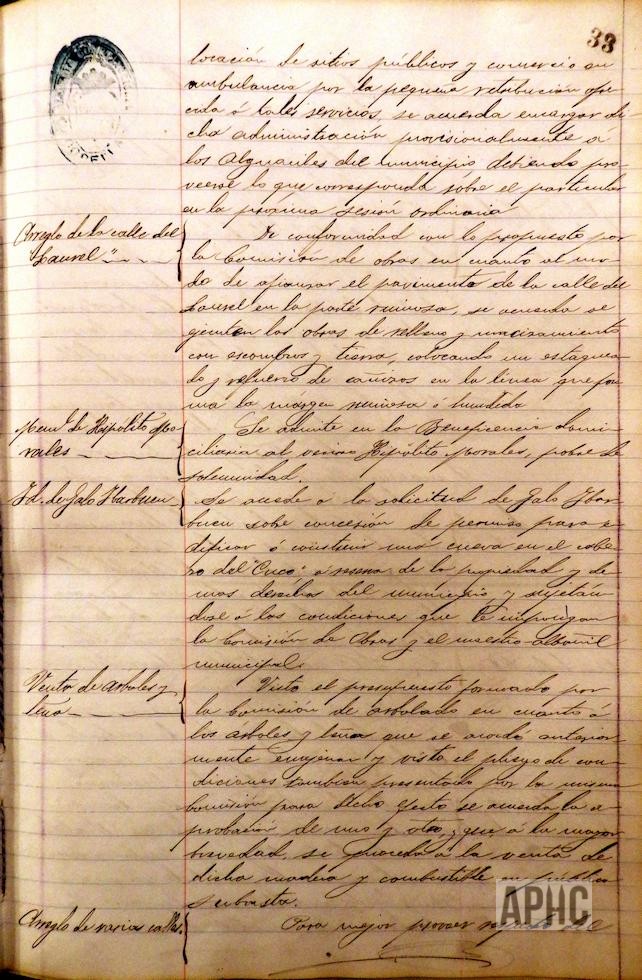 33
locación de sitios públicos y comercio en
ambulancia por la pequeña retribución ofre
cida á tales servicios, se acuerda encargar di
cha administración provisionalmente á
los Alguaciles del municipio debiendo pro
veerse lo que corresponda sobre el particular
en la próxima sesión ordinaria
Arreglo de la calle del
Laurel"
De conformidad con lo propuesto por
la Comisión de obras en cuanto al mo
do de afianzar el pavimento de la calle del
Laurel en la parte ruinosa, se acuerda se
ejecuten las obras de relleno y macizamiento
con escombros y tierra, colocando un estaquea
do y refuerzo de cañizos en la linea que for
ma la margen ruinosa ó hundida
de Hipólito Mo
rales
Se admite en la Beneficencia domi
ciliaria al vecino Hipólito Morales, pobre de
solemnidad.
Id. de Galo Ibarbuen
Se accede á la solicitud de Galo Ibar
buen sobre concesión de permiso para e
dificar ó construir una cueva en el cabe
zo del "Cuco" á reserva de la propiedad y de
mas derechos del municipio y sujetan
dose á las condiciones que le impongan
la Comisión de Obras y el maestro albañil
municipal.
Venta de arboles y
leña
Visto el presupuesto formado por
la Comisión de arbolado en cuanto á
los arboles y leña que se acordó anterior
mente enajenar y visto el pliego de con
diciones tambien presentado por la misma
Comisión para dicho efecto se acuerda la a
probación de uno y otro, y que á la mayor
brevedad, se proceda á la venta de
dicha madera y combustible en pública
subasta.
Arreglo de varias calles.
Para mejor proveer respecto del
APHC